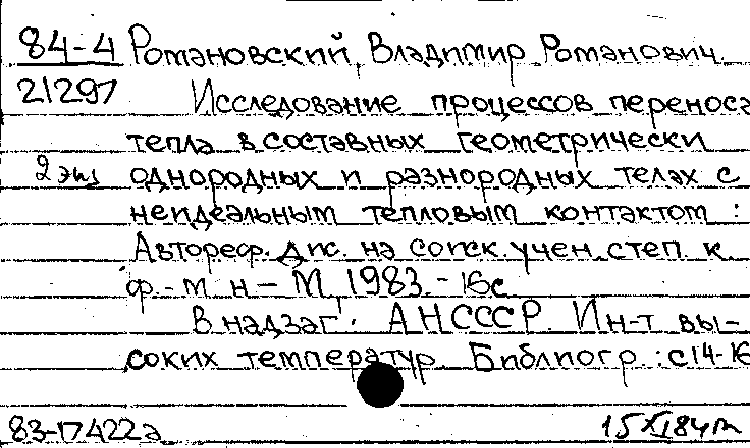 84-4 Романовский, Владимир Романович.
21297
Исследование процессов переноса
тепла в составных геометрически
2 экз однородных и разнородных телах с
неидеальным тепловым контактом :
Автореф. дис. на соиск. учен. степ. к.
ф.-м. н. - М., 1983. - 16 с.
В надзаг.: АН СССР. Ин-т вы-
соких температур. Библиогр.: с 14-16
83-17422а 15 XI 84